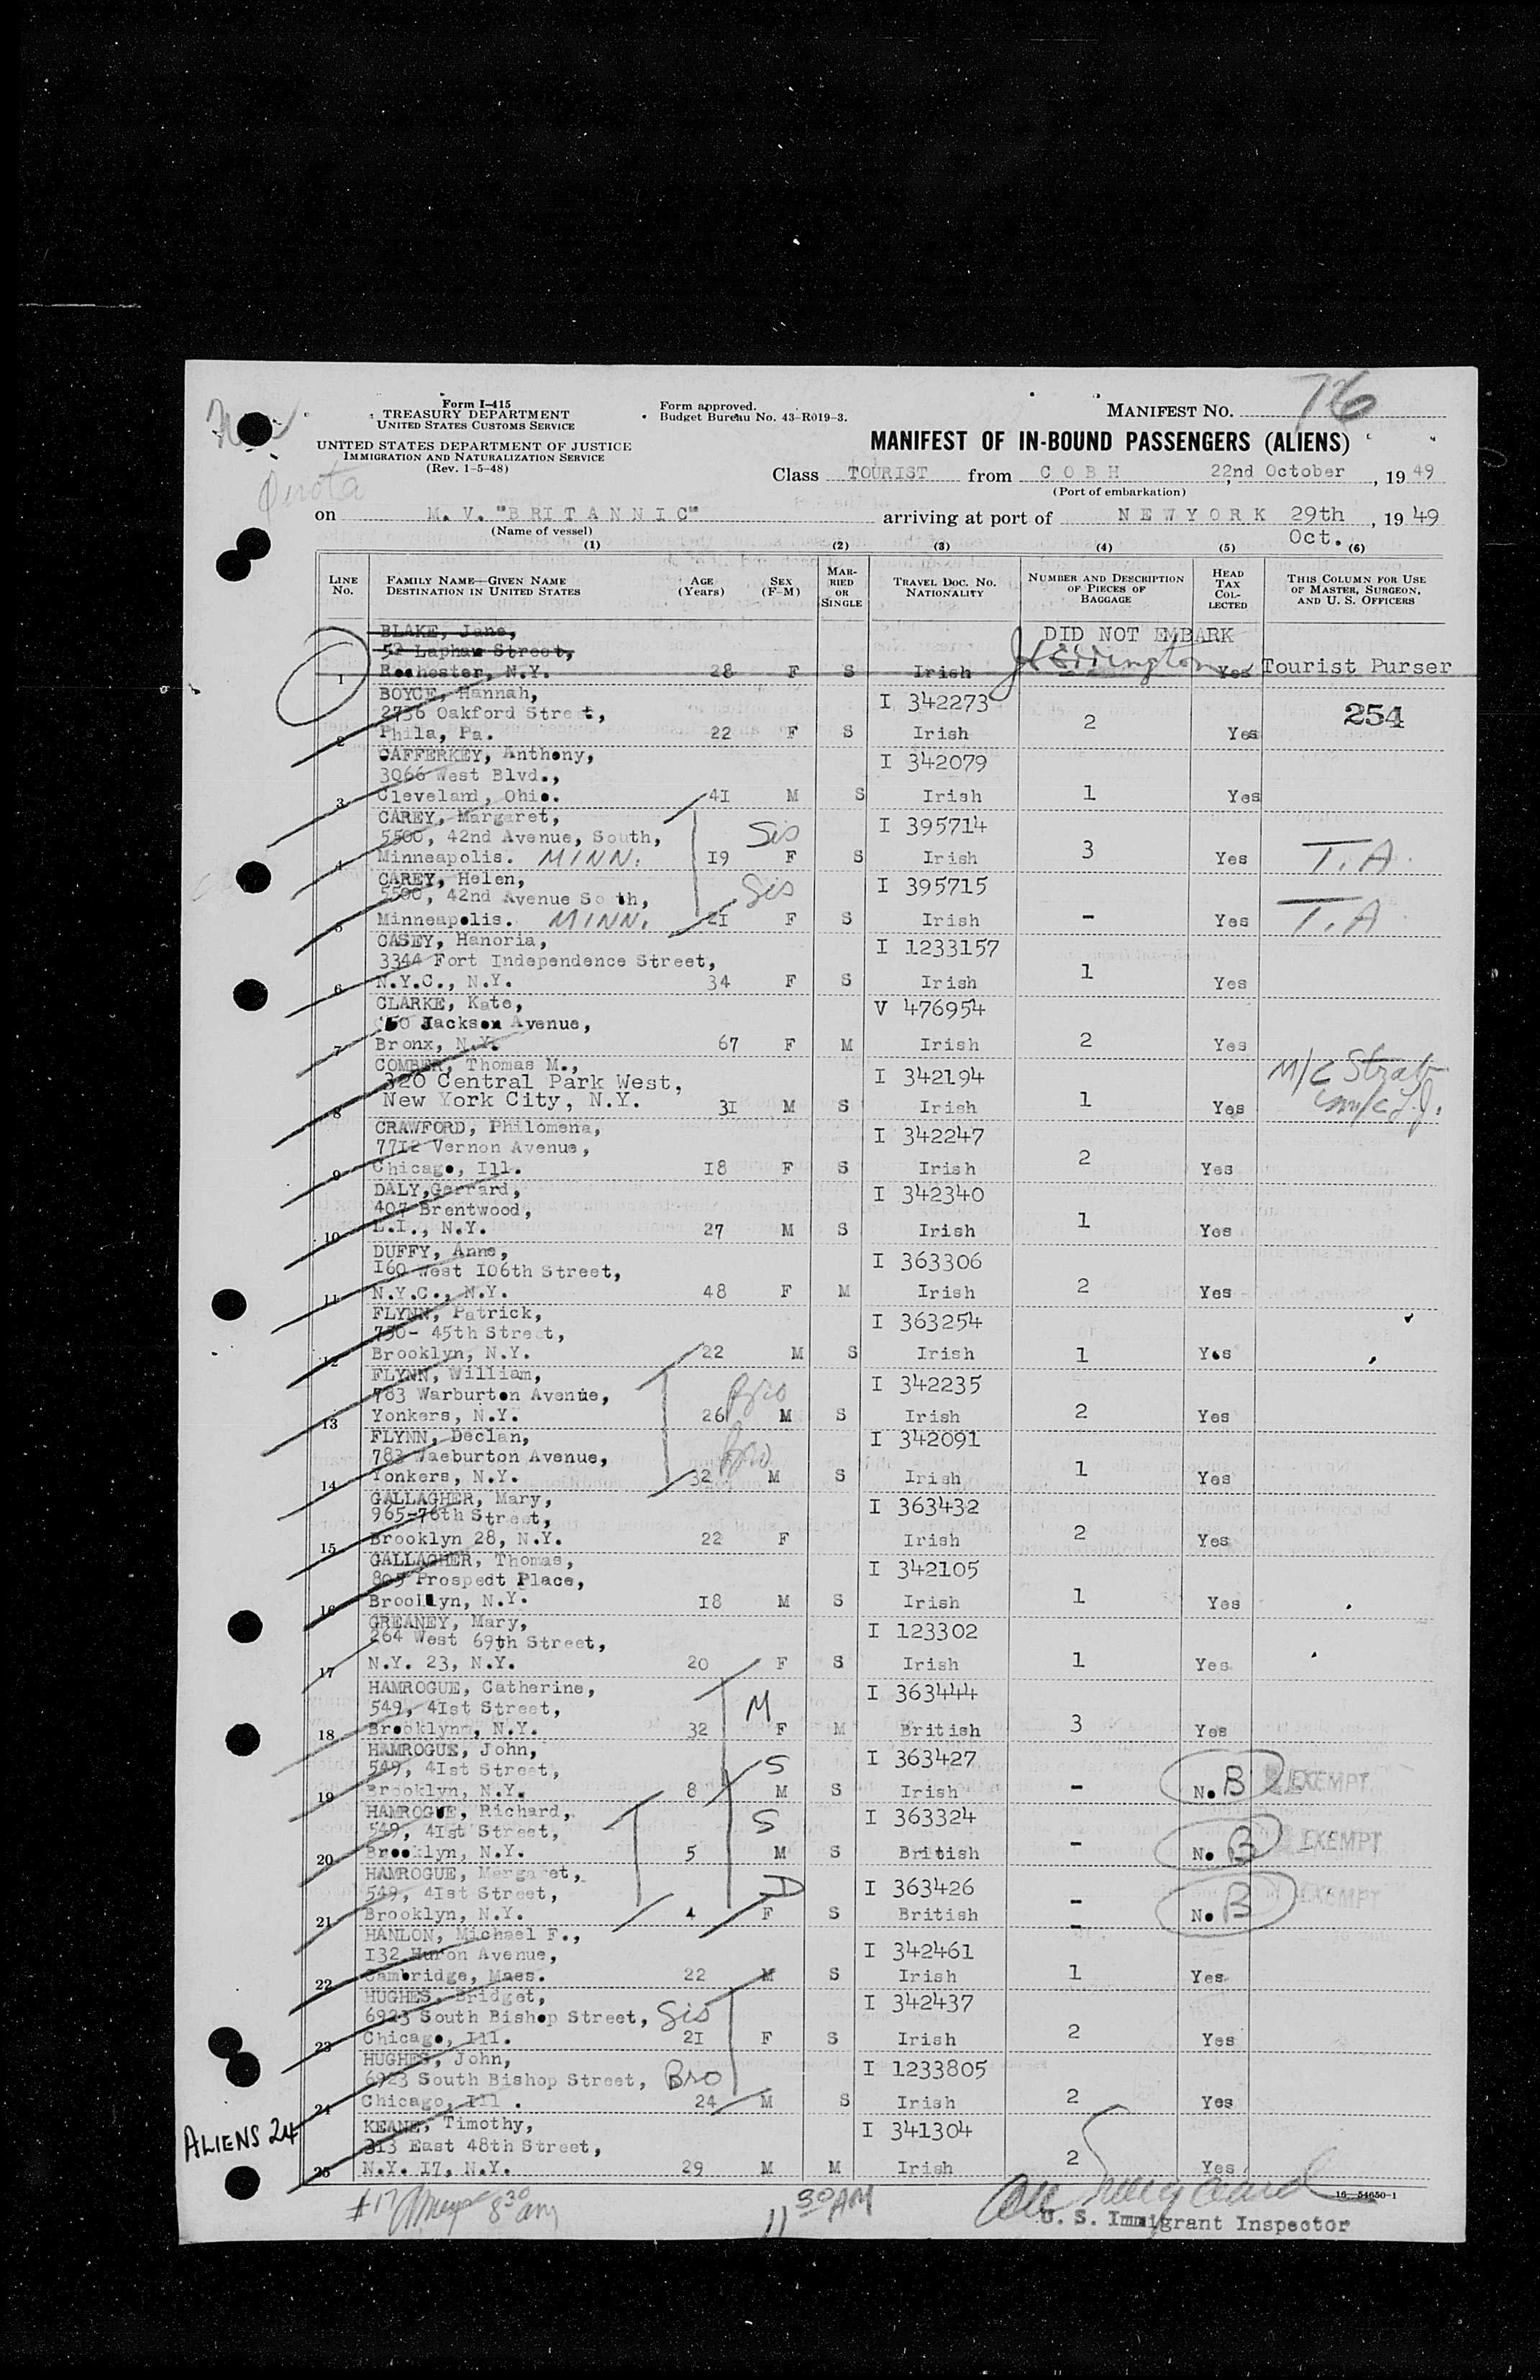 76
Form I-415
TREASURY DEPARTMENT
UNITED STATES CUSTOMS SERVICE
Form approved.
Budget Bureau No. 43-R019-3.
MANIFEST NO.
UNITED STATES DEPARTMENT OF JUSTICE
IMMIGRATION AND NATURALIZATION SERVICE
(Rev. 1-5-48)
MANIFEST OF IN-BOUND PASSENGERS (ALIENS)
Quota
Class TOURIST from COBH 22nd October, 1949
(Port of embarkation)
on M. V. "BRITANNIC" arriving at port of NEWYORK 29th Oct., 1949
(Name of vessel)
(1) (2) (3) (4) (5) (6)
LINE NO. FAMILY NAME—GIVEN NAME DESTINATION IN UNITED STATES AGE (Years) SEX (F-M) MARRIED OR SINGLE TRAVEL DOC. NO. NATIONALITY NUMBER AND DESCRIPTION OF PIECES OF BAGGAGE HEAD TAX COLLECTED THIS COLUMN FOR USE OF MASTER, SURGEON, AND U. S. OFFICERS
BLAKE, Jane, DID NOT EMBARK
52 Lapham Street,
1 Rochester, N.Y. 28 F S Irish Yes Tourist Purser
BOYCE, Hannah, I 342273
2736 Oakford Street, 254
2 Phila, Pa. 22 F S Irish 2 Yes
CAFFERKEY, Anthony, I 342079
3066 West Blvd.,
3 Cleveland, Ohio. 41 M S Irish 1 Yes
CAREY, Margaret, I 395714
5500, 42nd Avenue, South, Sis
4 Minneapolis. MINN. 19 F S Irish 3 Yes T.A.
CAREY, Helen, I 395715
5500, 42nd Avenue South, Sis
5 Minneapolis. MINN. 21 F S Irish - Yes T.A
CASEY, Hanoria, I 1233157
3344 Fort Independence Street,
6 N.Y.C., N.Y. 34 F S Irish 1 Yes
CLARKE, Kate, V 476954
50 Jackson Avenue,
7 Bronx, N.Y. 67 F M Irish 2 Yes
COMBER, Thomas M., I 342194 M/C
320 Central Park West,
8 New York City, N.Y. 31 M S Irish 1 Yes
CRAWFORD, Philomena, I 342247
7712 Vernon Avenue,
9 Chicago, Ill. 18 F S Irish 2 Yes
DALY,Gerrard, I 342340
407 Brentwood,
10 L.I., N.Y. 27 M S Irish 1 Yes
DUFFY, Anne, I 363306
160 West 106th Street,
11 N.Y.C., N.Y. 48 F M Irish 2 Yes
FLYNN, Patrick, I 363254
750- 45th Street,
12 Brooklyn, N.Y. 22 M S Irish 1 Yes
FLYNN, William, I 342235
783 Warburton Avenue, Bro
13 Yonkers, N.Y. 26 M S Irish 2 Yes
FLYNN, Declan, I 342091
783 Waeburton Avenue, Bro
14 Yonkers, N.Y. 32 M S Irish 1 Yes
GALLAGHER, Mary, I 363432
965-76th Street,
15 Brooklyn 28, N.Y. 22 F Irish 2 Yes
GALLAGHER, Thomas, I 342105
805 Prospedt Place,
16 Broollyn, N.Y. 18 M S Irish 1 Yes
GREANEY, Mary, I 123302
264 West 69th Street,
17 N.Y. 23, N.Y. 20 F S Irish 1 Yes
HAMROGUE, Catherine, I 363444
549, 41st Street, M
18 Brooklynn, N.Y. 32 F M British 3 Yes
HAMROGUE, John, I 363427
549, 41st Street, S
19 Brooklyn, N.Y. 8 M S Irish - No B EXEMPT
HAMROGUE, Richard, I 363324
549, 41st Street, S
20 Brooklyn, N.Y. 5 M S British - No B EXEMPT
HAMROGUE, Margaret, I 363426
549, 41st Street, D
21 Brooklyn, N.Y. 4 F S British - No B EXEMPT
HANLON, Michael F., I 342461
132 Huron Avenue,
22 Cambridge, Maes. 22 M S Irish 1 Yes
HUGHES, Bridget, I 342437
6923 South Bishop Street, Sis
23 Chicago, Ill. 21 F S Irish 2 Yes
HUGHES, John, I 1233805
6923 South Bishop Street, Bro
24 Chicago, Ill. 24 M S Irish 2 Yes
ALIENS 24
KEANE, Timothy, I 341304
313 East 48th Street,
25 N.Y. 17, N.Y. 29 M M Irish 2 Yes
16—54650-1
#17 8 30 am 11 30 AM
U. S. Immigrant Inspector